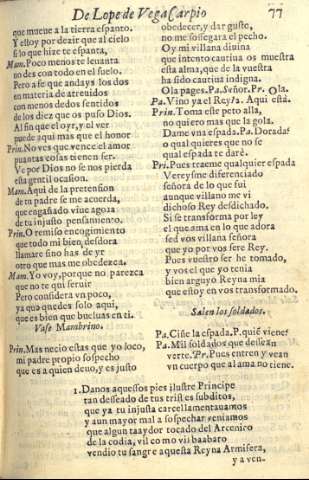 De Lope de Vega Carpio 77
que mueue a la tierra espanto.
Y estoy por dezir que al cielo
se lo que hize te espanta,
Man. Poco menos te leuanta
no des con todo en el suelo.
Pero a fe que andays los dos
en materia de atreuidos
con menos de dos sentidos
de los diez que os puso Dios.
Al fin que el oyr, y el ver
puede aqui mas que el honor
Prin. No ves que vence el amor
quantas cosas tienen ser.
Ve por Dios no se nos pierda
esta gentil ocasion.
Mam. Aqui de la pretension
de tu padre se me acuerda,
que engañado viue agora
de tu injusto pensamiento.
Prin. O remiso encogimiento
que todo mi bien desdora
llamare sino has de yr
otro que mas me obedezca.
Mam. Yo voy, porque no parezca
que no te qui seruir
Pero considera vn poco,
ya que quedes solo aqui,
que es bien que bueluas en ti.
Vase Mambrino.
Prin. Mas necio estas que yo loco,
mi padre propio sospecho
que es a quien deuo, y es justo
obedecer, y dar gusto,
no me sossegara el pecho.
Oy mi villana diuina
que intento cautiua os muestra
esta alma, que de la vuestra
ha sido cautiua indigna.
Ola pages. Pa. Señor. Pr. Ola.
Pa. Vino ya el Rey? Pa. Aqui está.
Prin. Toma este peto alla,
no quiero mas que la gola.
Dame vna espada. Pa. Dorada?
o qual quieres que no se
qual espada te darè.
Pri. Pues traeme qualquier espada
Vereysme diferenciado
señora de lo que fui
aunque villano me vi
dichoso Rey desdichado.
Si se transforma por ley
el que ama en lo que adora
sed vos villana señora
que yo por vos sere Rey.
Pues vuestro ser he tomado,
y vos el que yo tenia
bien arguyo Reyna mia
que estoy en vos transformado.
Salen los soldados.
Pa. Ciñe la espada. P. quiē viene?
Pa. Mil soldados que dessean
verte. Pr. Pues entren y vean
vn cuerpo que al ama no tiene.
1. Danos aquessos pies ilustre Principe
tan desseado de tus tristes subditos,
que ya tu injusta carcel lamentauamos
y aun mayor mal a sospechar veniamos
que algun traydor tocado del Arcenico
de la codia, vil como vil baabaro
vendio tu sangre aquesta Reyna Armisera,
y a ven-